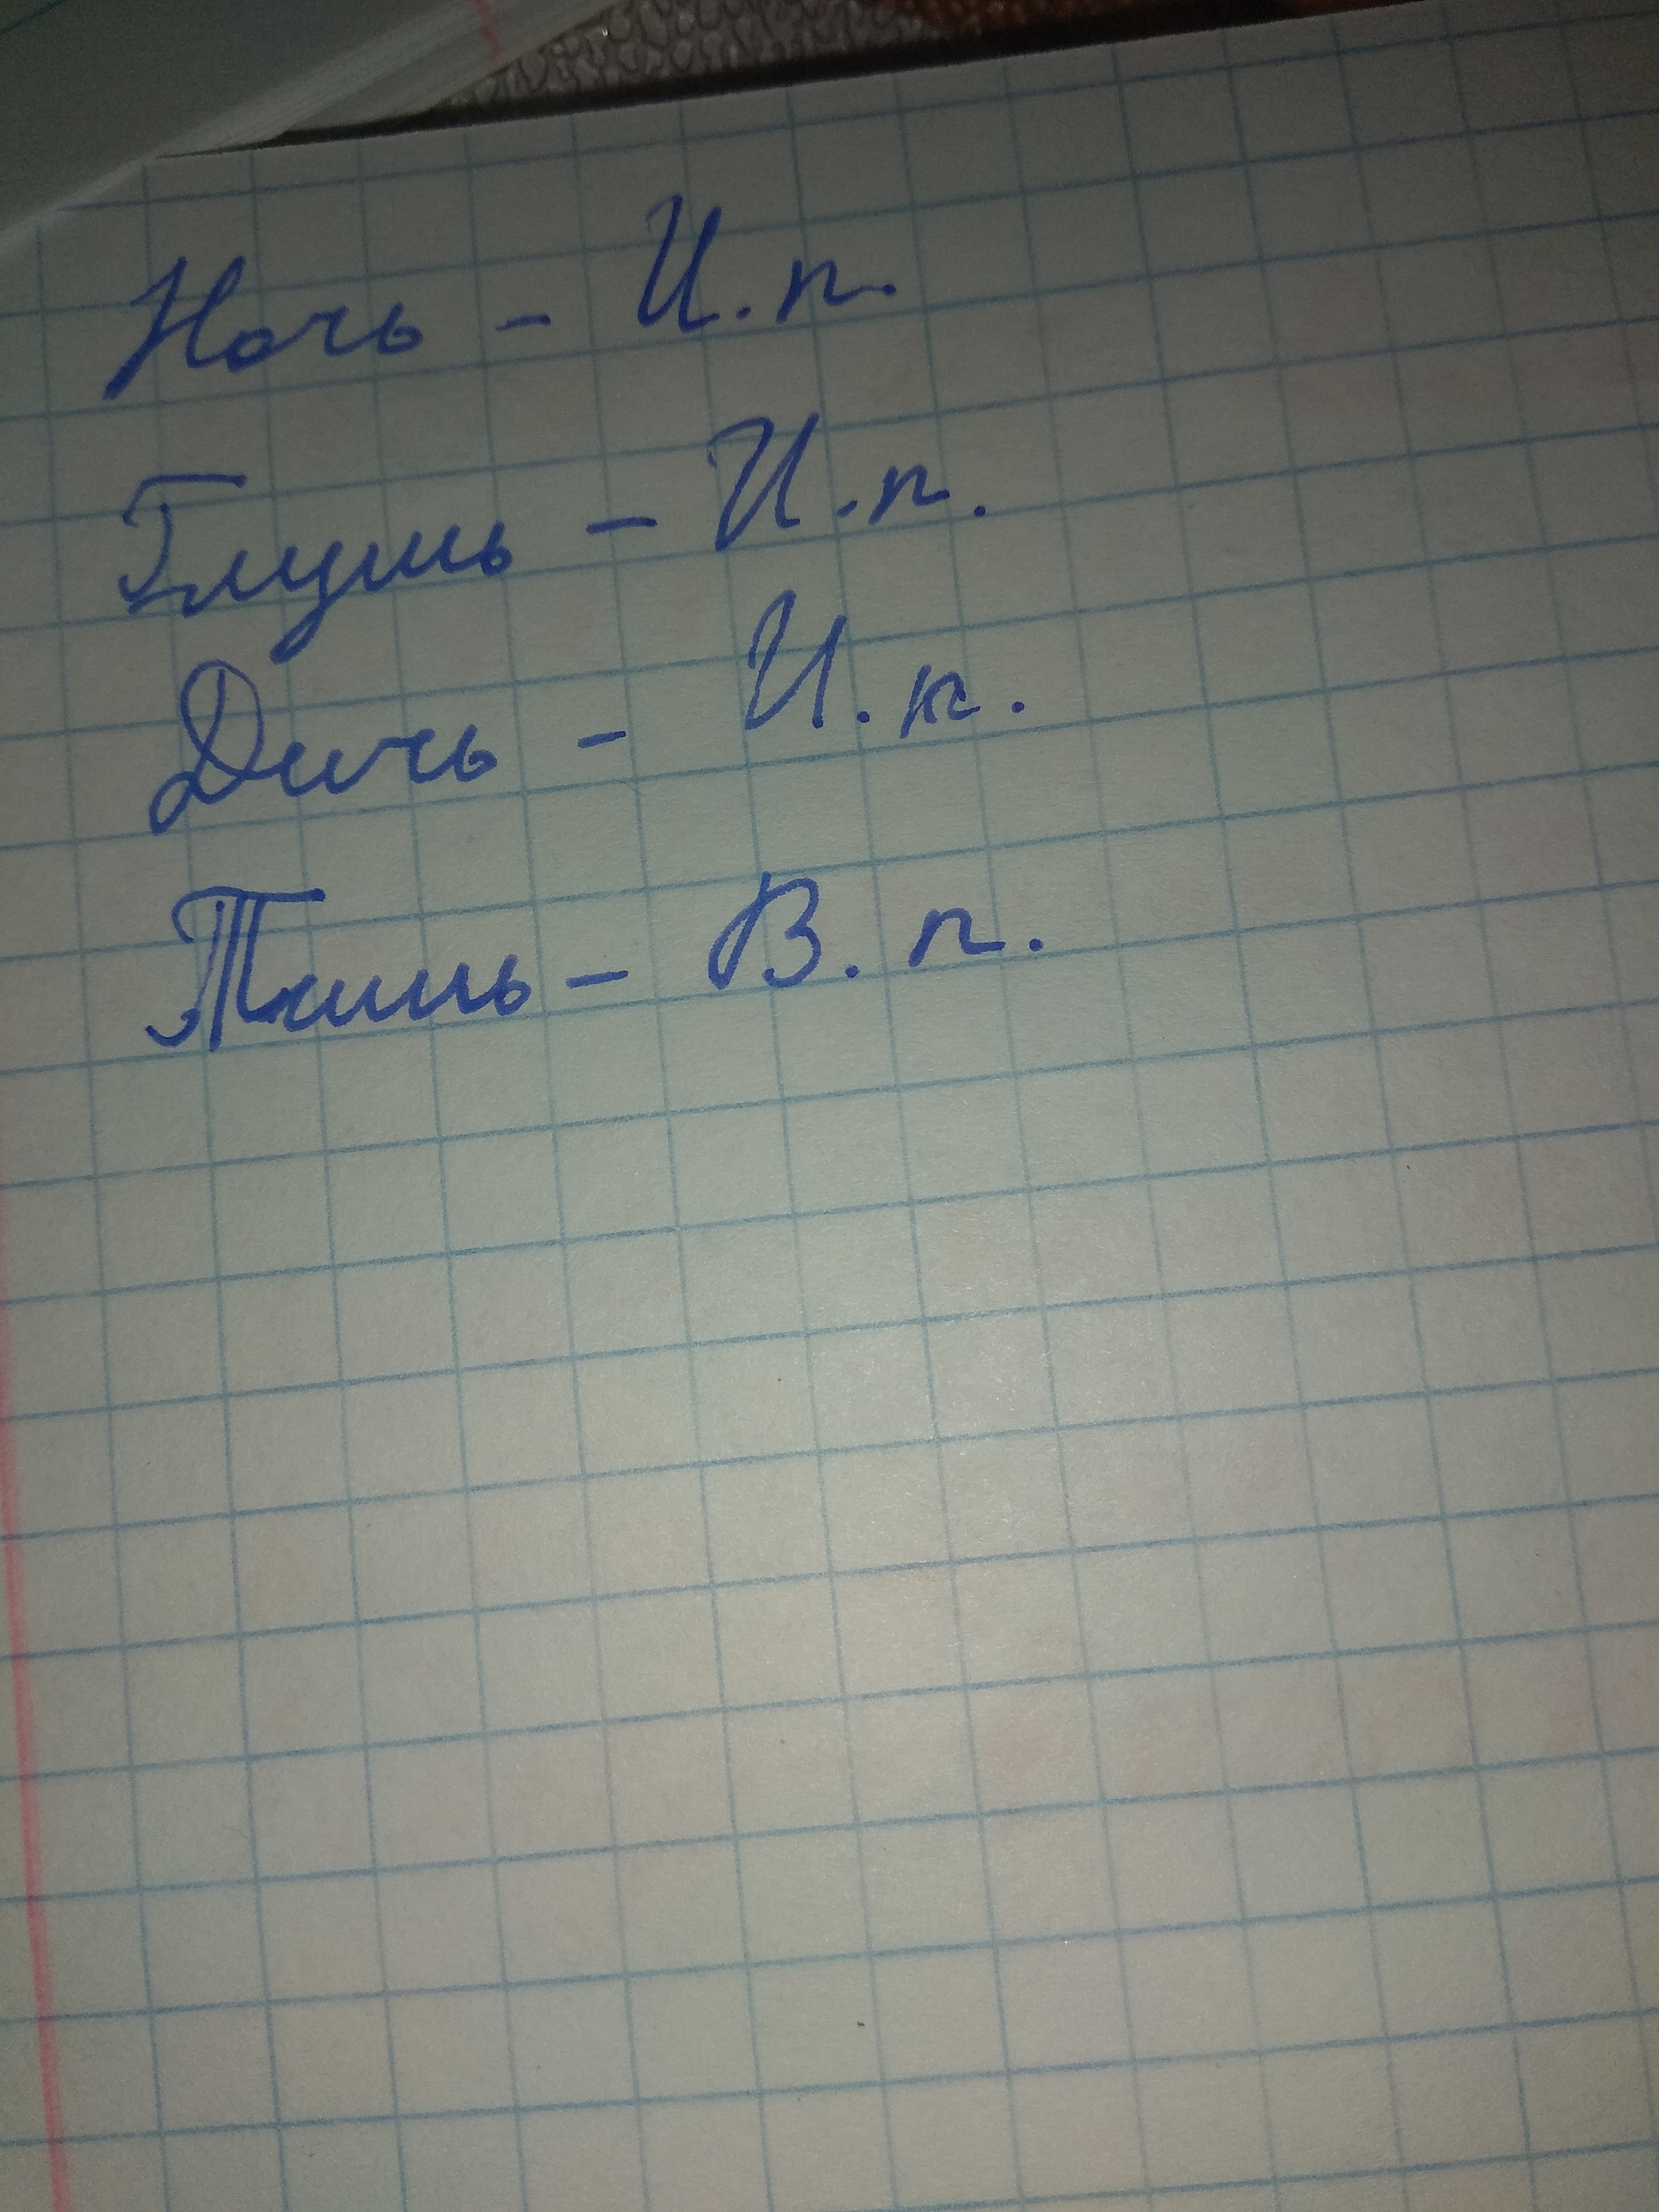 Ночь - И.п.
Глушь - И.п.
Дичь - И.п.
Тишь - В.п.